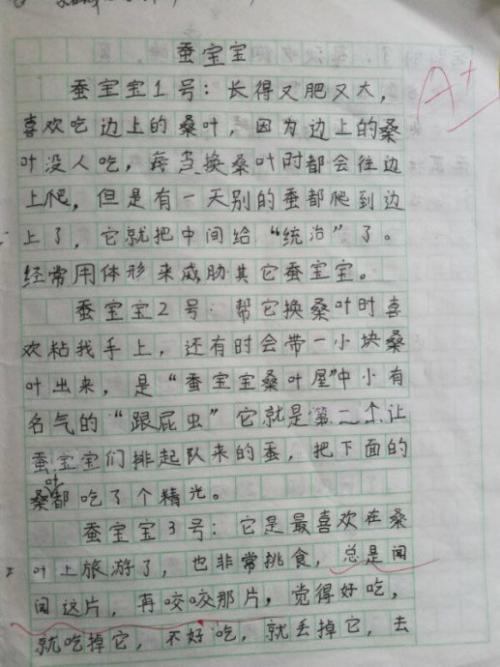 蚕宝宝
蚕宝宝1号：长得又肥又大，
A+
喜欢吃边上的桑叶，因为边上的桑
叶没人吃，每当换桑叶时都会往边
上爬，但是有一天别的蚕都爬到边
上了，它就把中间给“统治”了。
经常用体形来威胁其它蚕宝宝。
蚕宝宝2号：帮它换桑叶时喜
欢粘我手上，还有时会带一小块桑
叶出来，是“蚕宝宝桑叶屋”中小有
名气的“跟屁虫”它就是第一个让
蚕宝宝们排起队来的蚕，把下面的
桑叶都吃了个精光。
蚕宝宝3号：它是最喜欢在桑
叶上旅游了，也非常挑食，总是闻
闻这片，再咬咬那片，觉得好吃，
就吃掉它，不好吃，就丢掉它，去